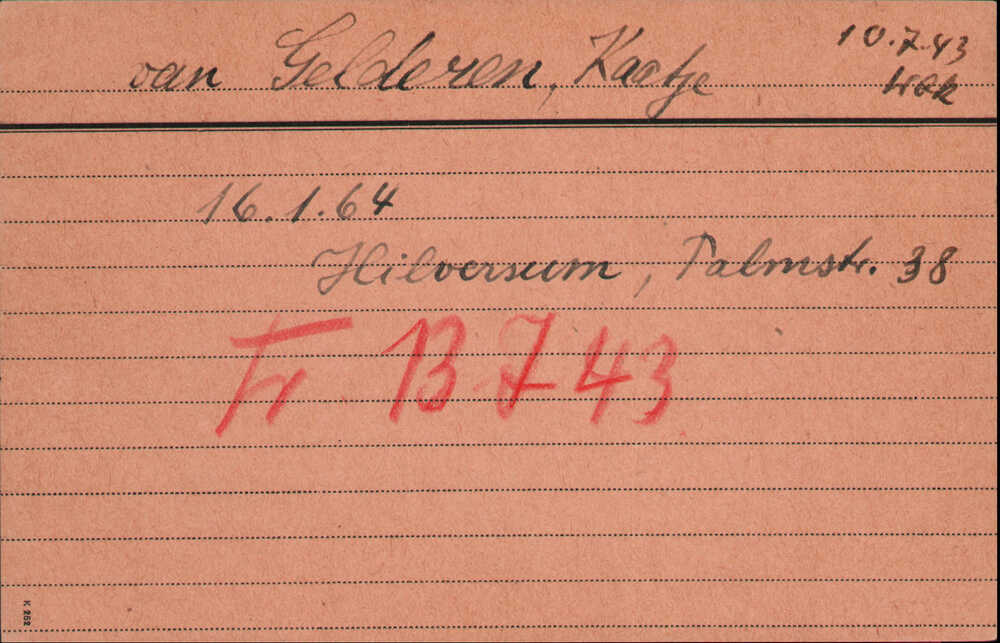 van Gelderen, Kaatje
10.7.43
WBK
16.1.64
Hilversum, Palmstr. 38
Fr 13 7 43
K 252